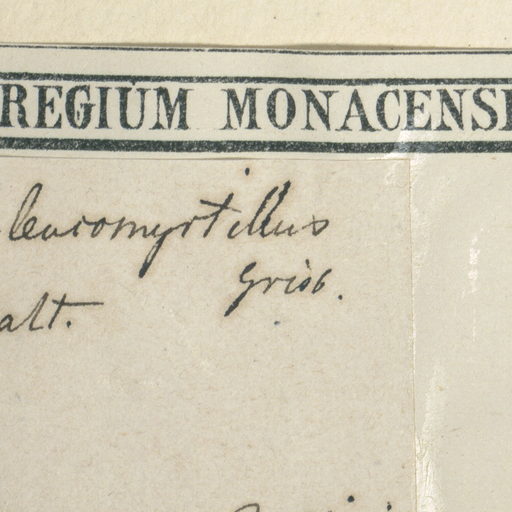 REGIUM MONACENSE
leucomyrtillus
Grisb.
alt.